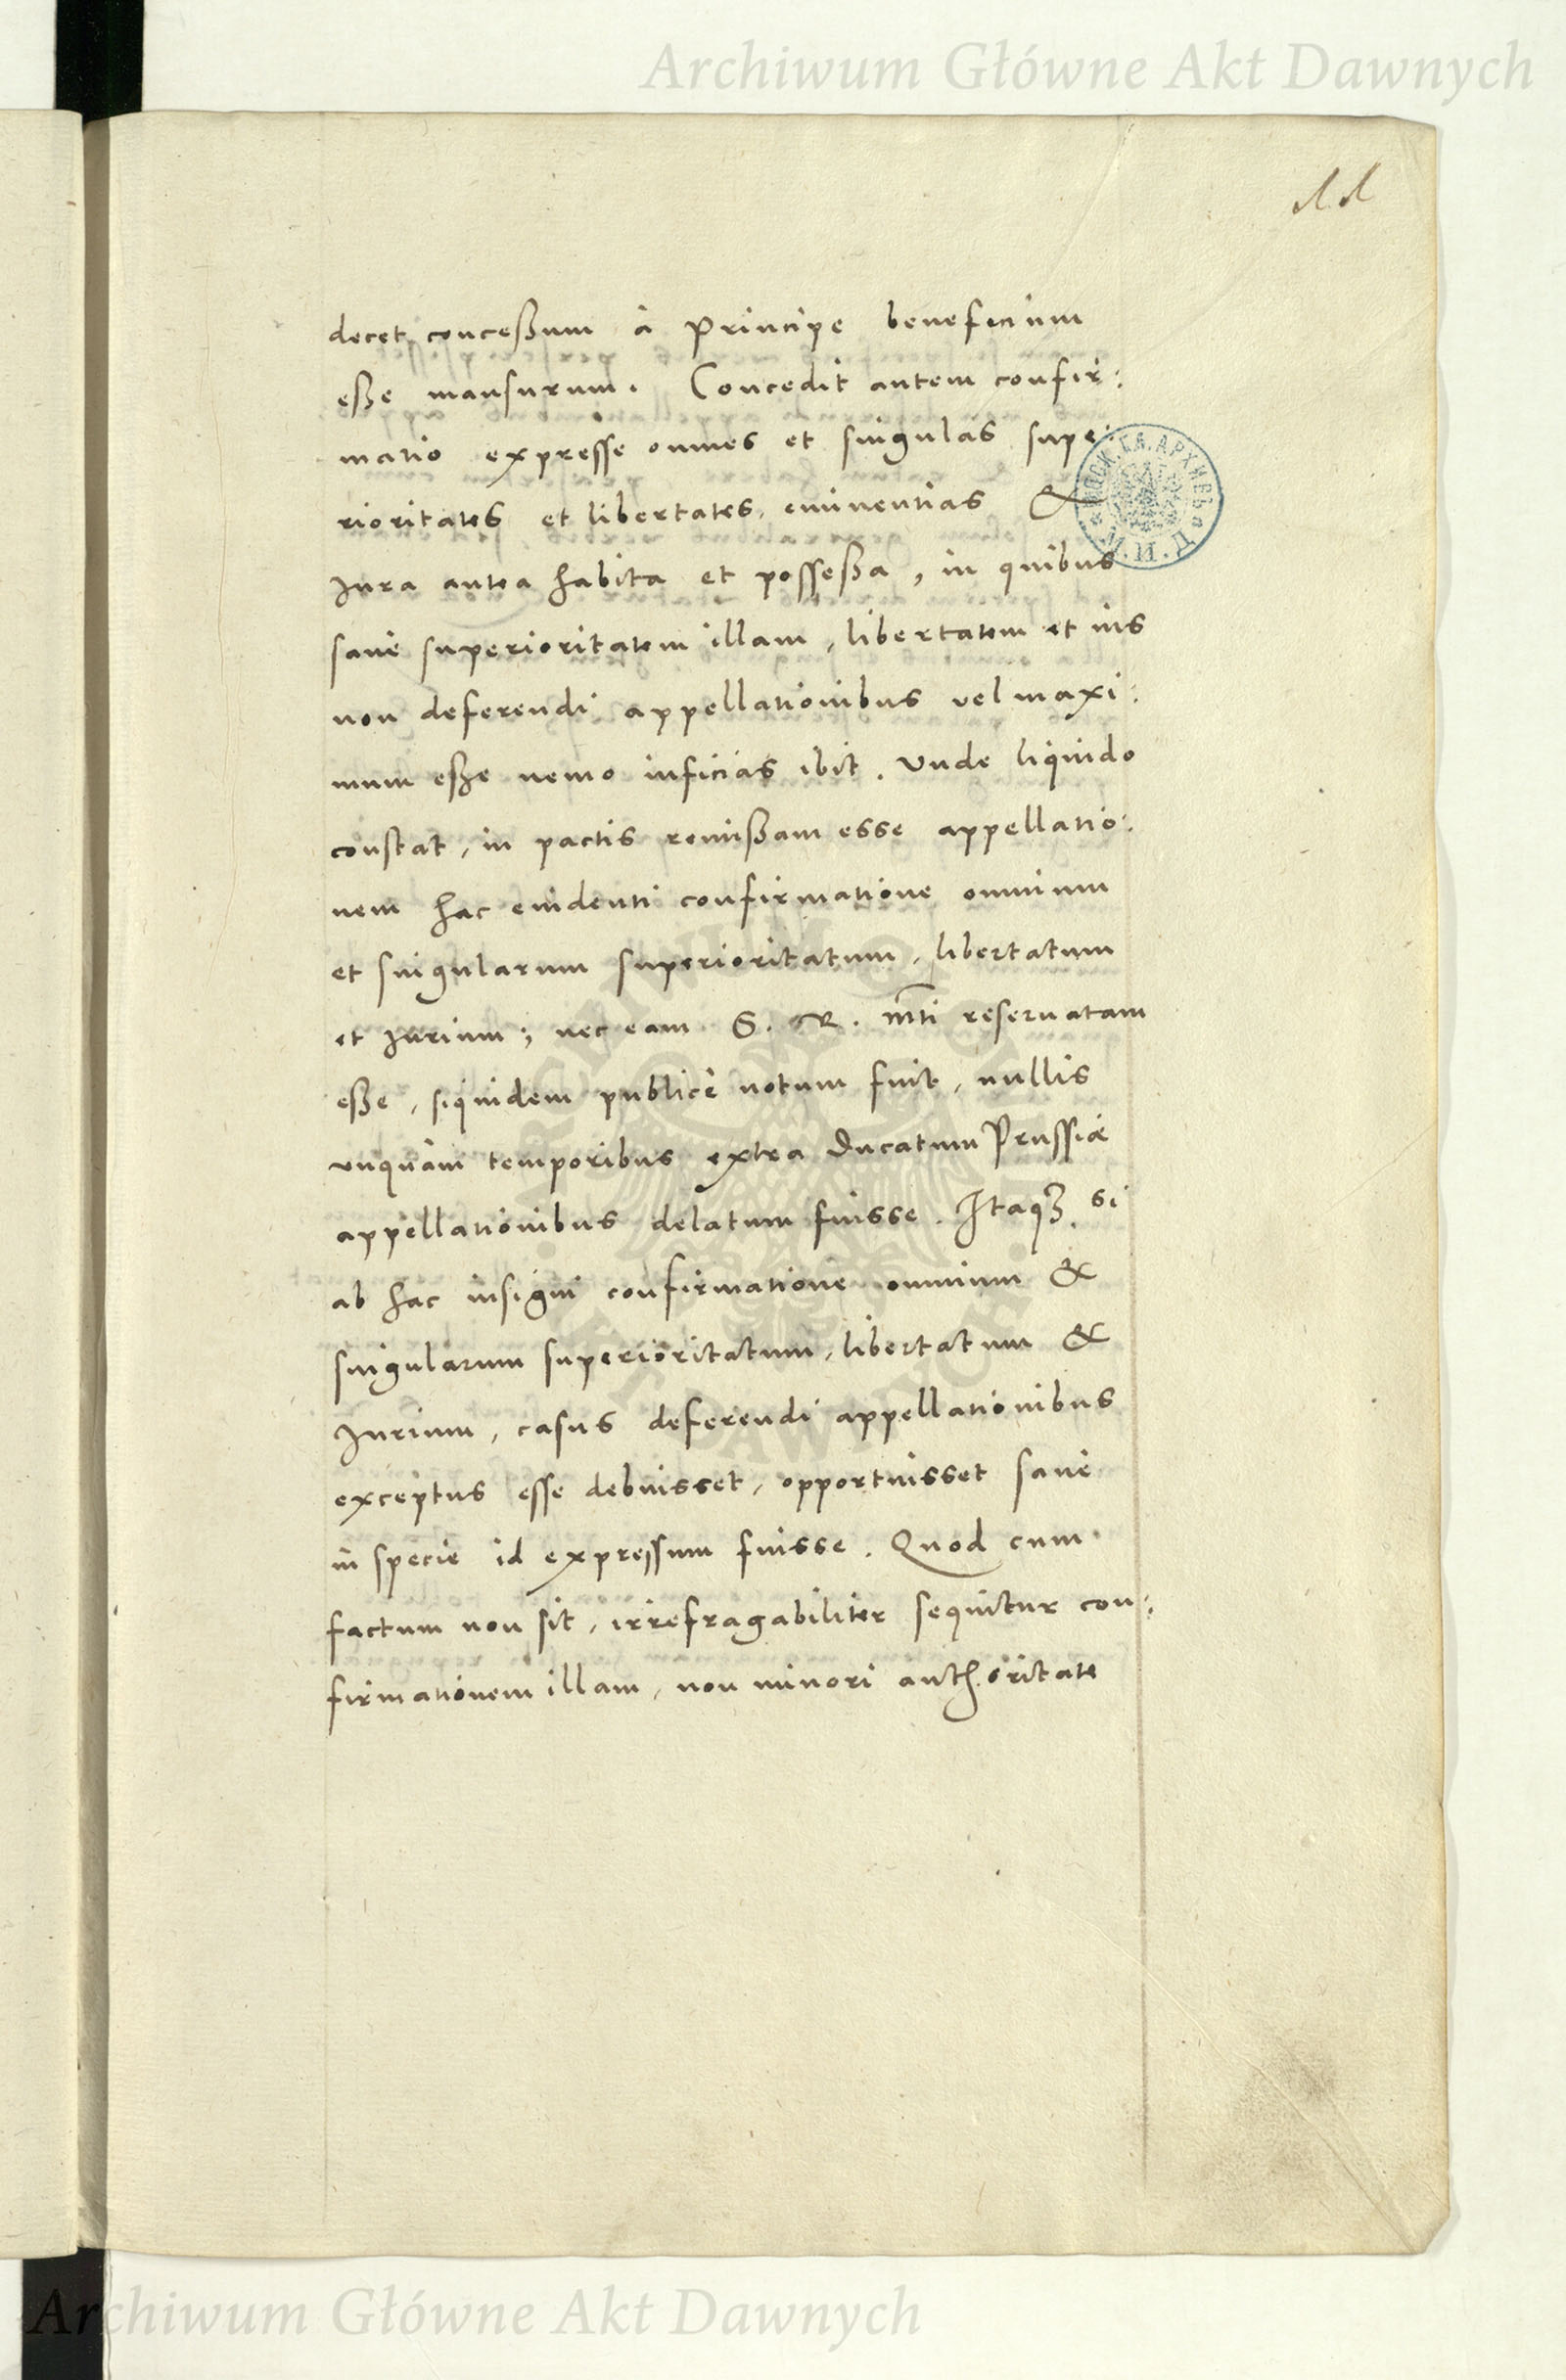 Archiwum Główne Akt Dawnych
11
decet concessum à Principe beneficium
esse mansurum. Concedit autem confir:
matio expresse omnes et singulas supe:
rioritates et libertates, eminentias &
Jura antea habita et possessa, in quibus
sanè superioritatem illam, libertatem et ius
non deferendi appellationibus vel maxi:
mum esse nemo inficias ibit. Vnde liquido
constat, in pactis remissam esse appellatio:
nem hac euidenti confirmatione omnium
et singularum superioritatum, libertatum
et Jurium; nec eam S. R. Mti reseruatam
esse, siquidem publicè notum fuit, nullis
vnquàm temporibus extra Ducatum Prussiæ
appellationibus delatum fuisse. Itaqȝ si
ab hac insigni confirmatione omnium &
singularum superioritatum, libertatum &
Jurium, casus deferendi appellationibus
exceptus esse debuisset, opportuisset sanè
in specie id expressum fuisse. Quod cum
factum non sit, irrefragabiliter sequitur con:
firmationem illam, non minori authoritate
Archiwum Główne Akt Dawnych